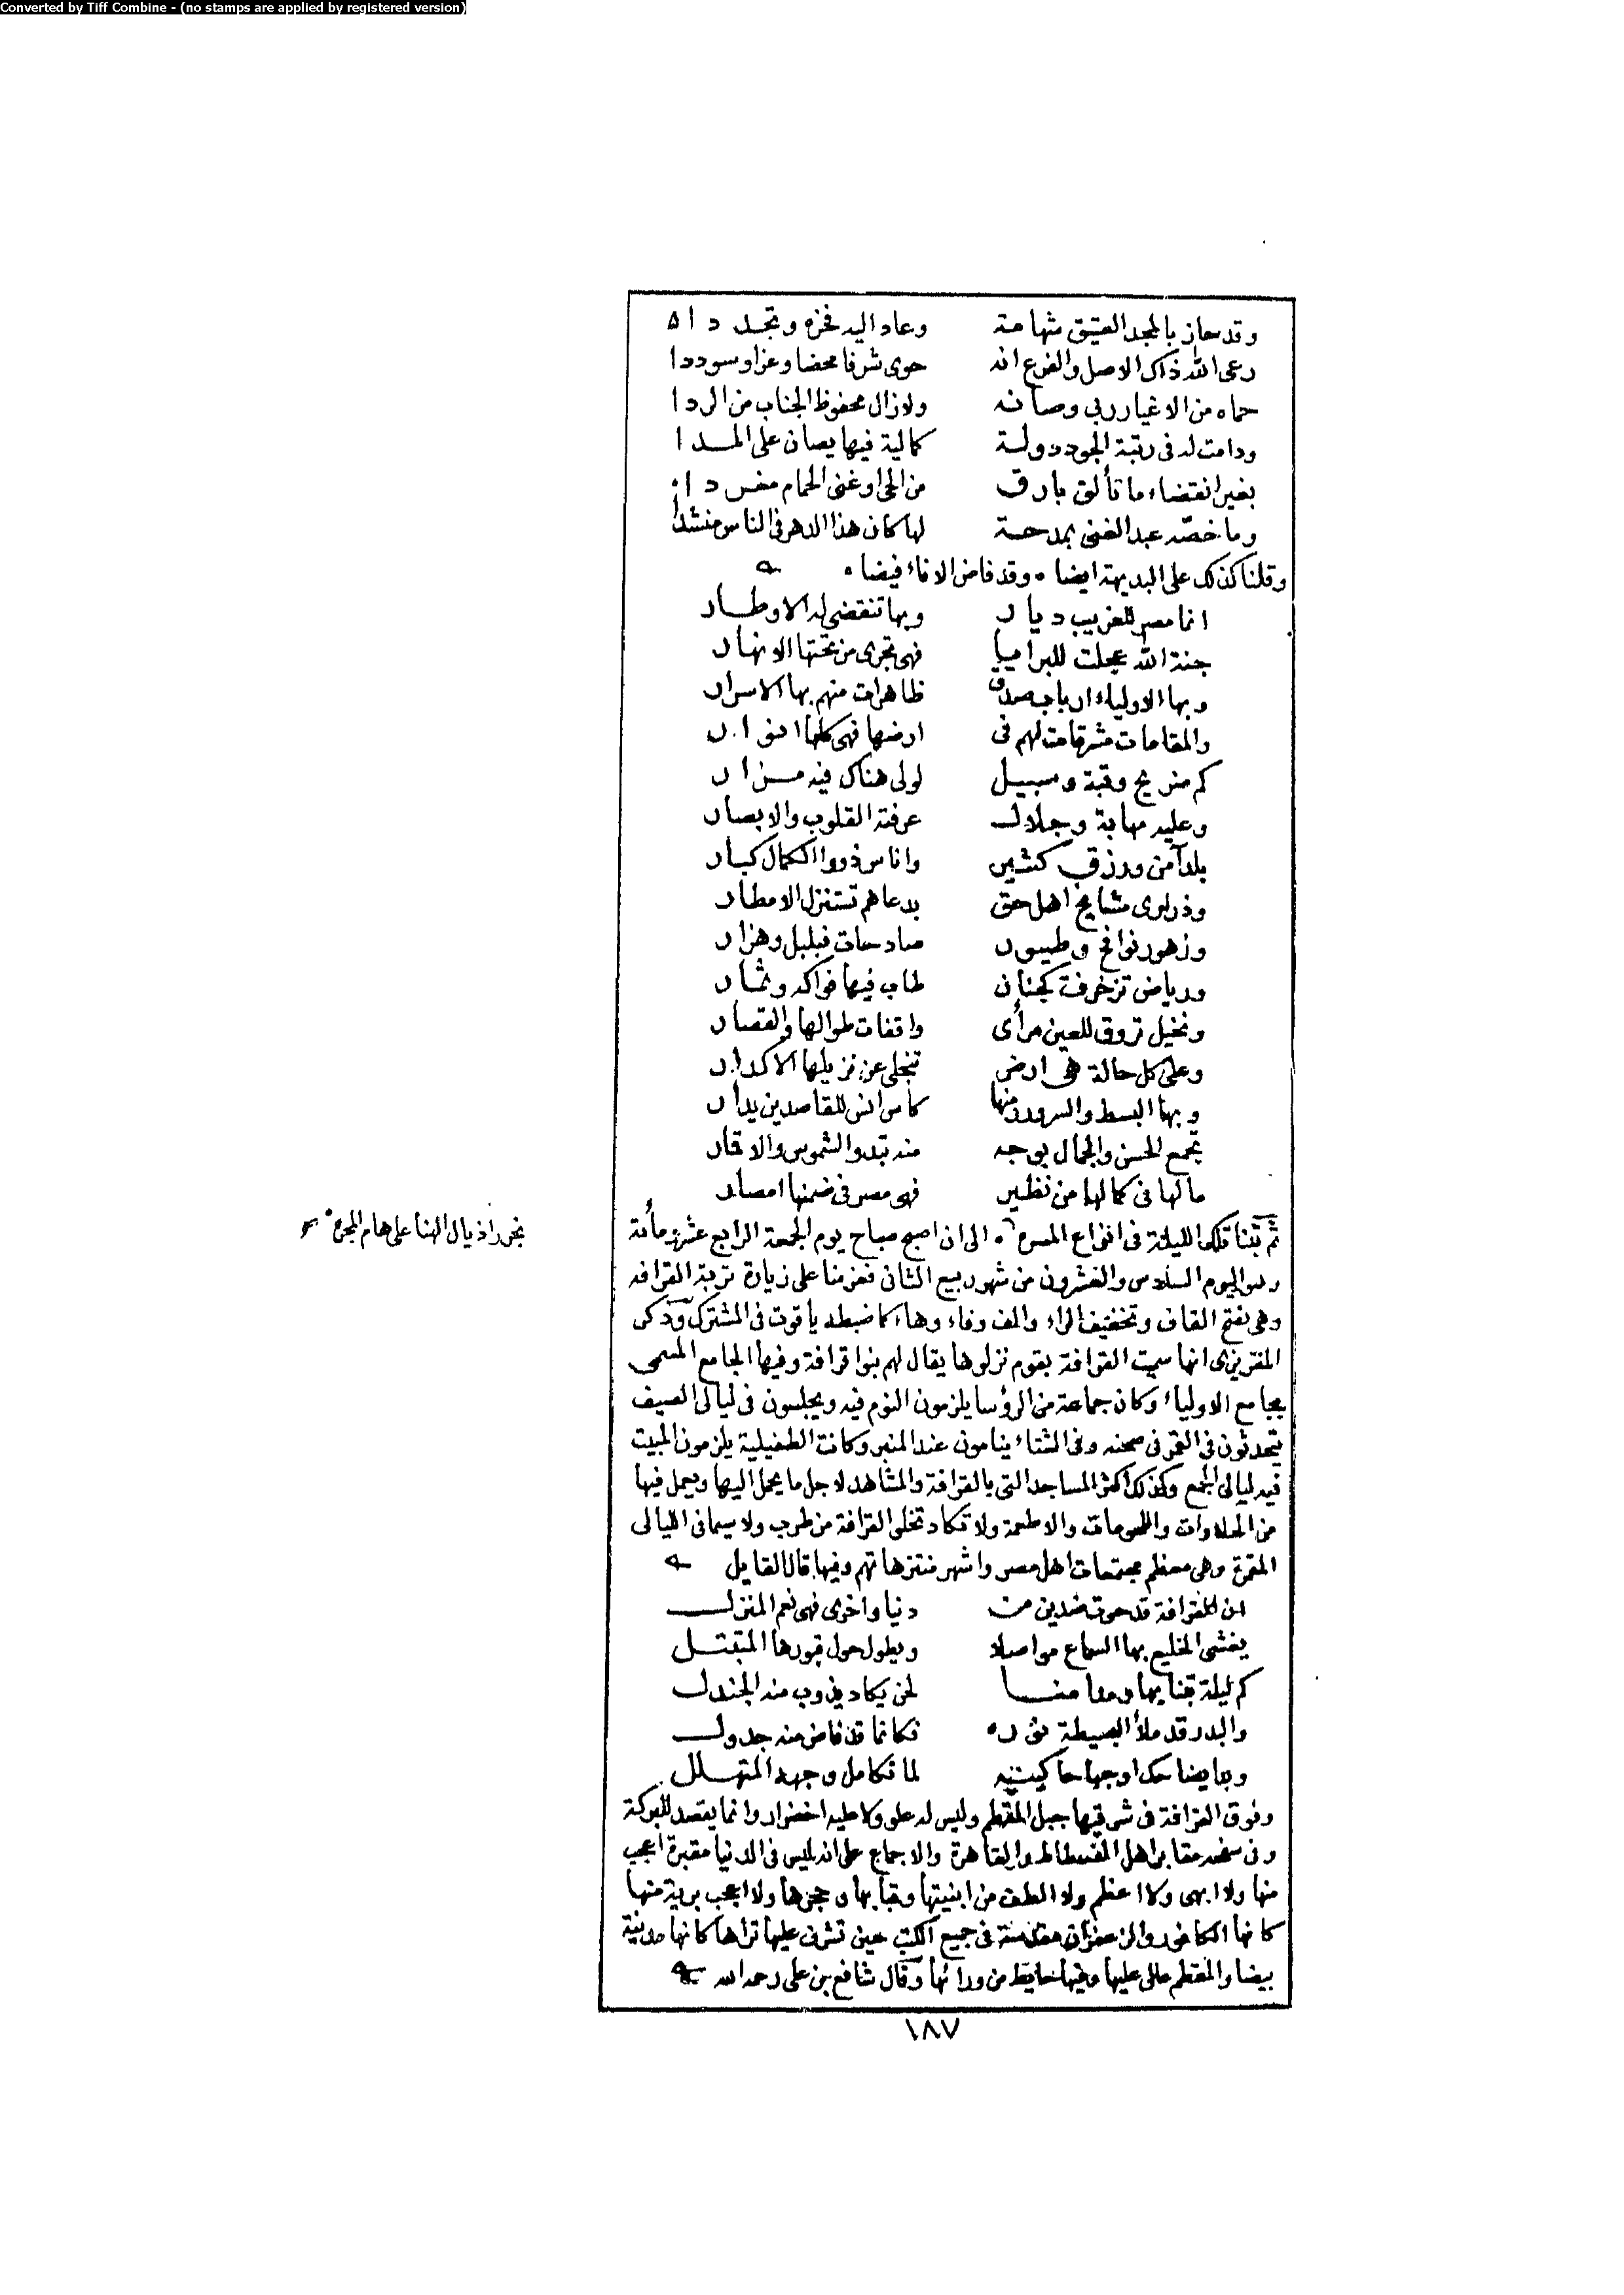 Converted by Tiff Combine - (no stamps are applied by registered version)
وقد حاز بالمجد العتيق شهامة وعاد اليه فخره وتجددا
رعى الله ذاك الاصل والفرع انه حوى شرفا محضا وعزا وسوددا
حماه من الاغيار ربي وصانه ولازال محفوظ الجناب من الردا
ودامت له في رتبة الجود دولة كمالية فيها يصان على المدا
بغير انقضاء ما تألق بارق من الحى او غنى الحمام مغردا
وما خصّه عبد الغنى بمدحة لها كان هذا الدهر في الناس منشدا
وقلنا كذلك على البديهة ايضا ٥ وقد فاض الاناء فيضا ٥
انما مصر للغريب ديار وبها تنقضى له الاوطار
جنة الله عجلت للبرايا فهى تجرى من تحتها الانهار
وبها الاولياء ارباب صدق ظاهرات منهم بها الاسرار
والمقامات مشرقات لهم في ارضها فهى كلها انوار
كم ضريح وقبة وسبيل لولى هناك فيه مزار
وعليه مهابة وجلال عرفته القلوب والابصار
بلد آمن ورزق كثير واناس ذووا الكمال كبار
وذرارى مشايخ اهل حق بدعاهم تستنزل الامطار
وزهور نوافح وطيور صادحات فبلبل وهزار
ورياض تزخرفت كجنان طاب فيها فواكه وثمار
ونخيل تروق للعين مرأى واقفات طوالها والقصار
وعلى كل حالة هى ارض تنجلى عن نزيلها الاكدار
وبها البسط والسرور ومنها كاس انس للقاصدين يدار
تجمع الحسن والجمال بوجه منه تبدو الشموس والاقمار
ما لها في كمالها من نظير فهى مصر في ضمنها امصار
ثم بتنا تلك الليلة في انواع المسرة ٥ الى ان اصبح صباح يوم الجمعة الرابع عشر ومأئة
نجرر اذيال الهنا على هام المجرة ٥
وهو اليوم السادس والعشرون من شهر ربيع الثانى فعزمنا على زيارة تربة القرافه
وهى بفتح القاف وتخفيف الراء والف وفاء وهاء كما ضبطه ياقوت في المشترك وذكر
المقريزى انها سميت القرافة بقوم نزلوها يقال لهم بنوا قرافة وفيها الجامع المسمى
بجامع الاولياء وكان جماعة من الرؤسا يلزمون النوم فيه ويجلسون في ليالى الصيف
يتحدثون في القمر في صحنه وفى الشتاء ينامون عند المنبر وكانت الطفيلية يلزمون المبيت
فيه ليالى الجمع وكذلك اكثر المساجد التى بالقرافة والمشاهد لاجل ما يحمل اليها ويعمل فيها
من الحلاوات واللحومات والاطعمة ولا تكاد تخلى القرافة من طرب ولا سيما في الليالى
المقمرة وهى معظم مجتمعات اهل مصر واشهر منتزهاتهم وفيها قال القايل
ان القرافة قد حوت ضدين من دنيا واخرى فهى نعم المنزل
يغشى الخليع بها السماع مواصلا ويطول حول قبورها المتبتل
كم ليلة بتنا بها ونديمنا لحن يكاد يذوب منه الجندل
والبدر قد ملأ البسيطة نوره فكانما قد فاض منه جدول
وبدا يضاحك اوجها حاكينه لما تكامل وجهه المتهلل
وفوق القرافة في شرقيها جبل المقطم وليس له علو ولا عليه اخضرار وانما يقصد للبركة
وفى سفحه مقابر اهل الفسطاط والقاهرة والاجماع على انه ليس في الدنيا مقبرة اعجب
منها ولا ابهى ولا اعظم ولا الطف من ابنيتها وقبابها وحجرها ولا اعجب تربة منها
كانها الكافور والزعفران مقدسة في جميع الكتب حين تشرف عليها تراها كانها مدينة
بيضا والمقطم عالى عليها وفيها حايط من ورائها وقال شافع بن على رحمه الله
١٨٧